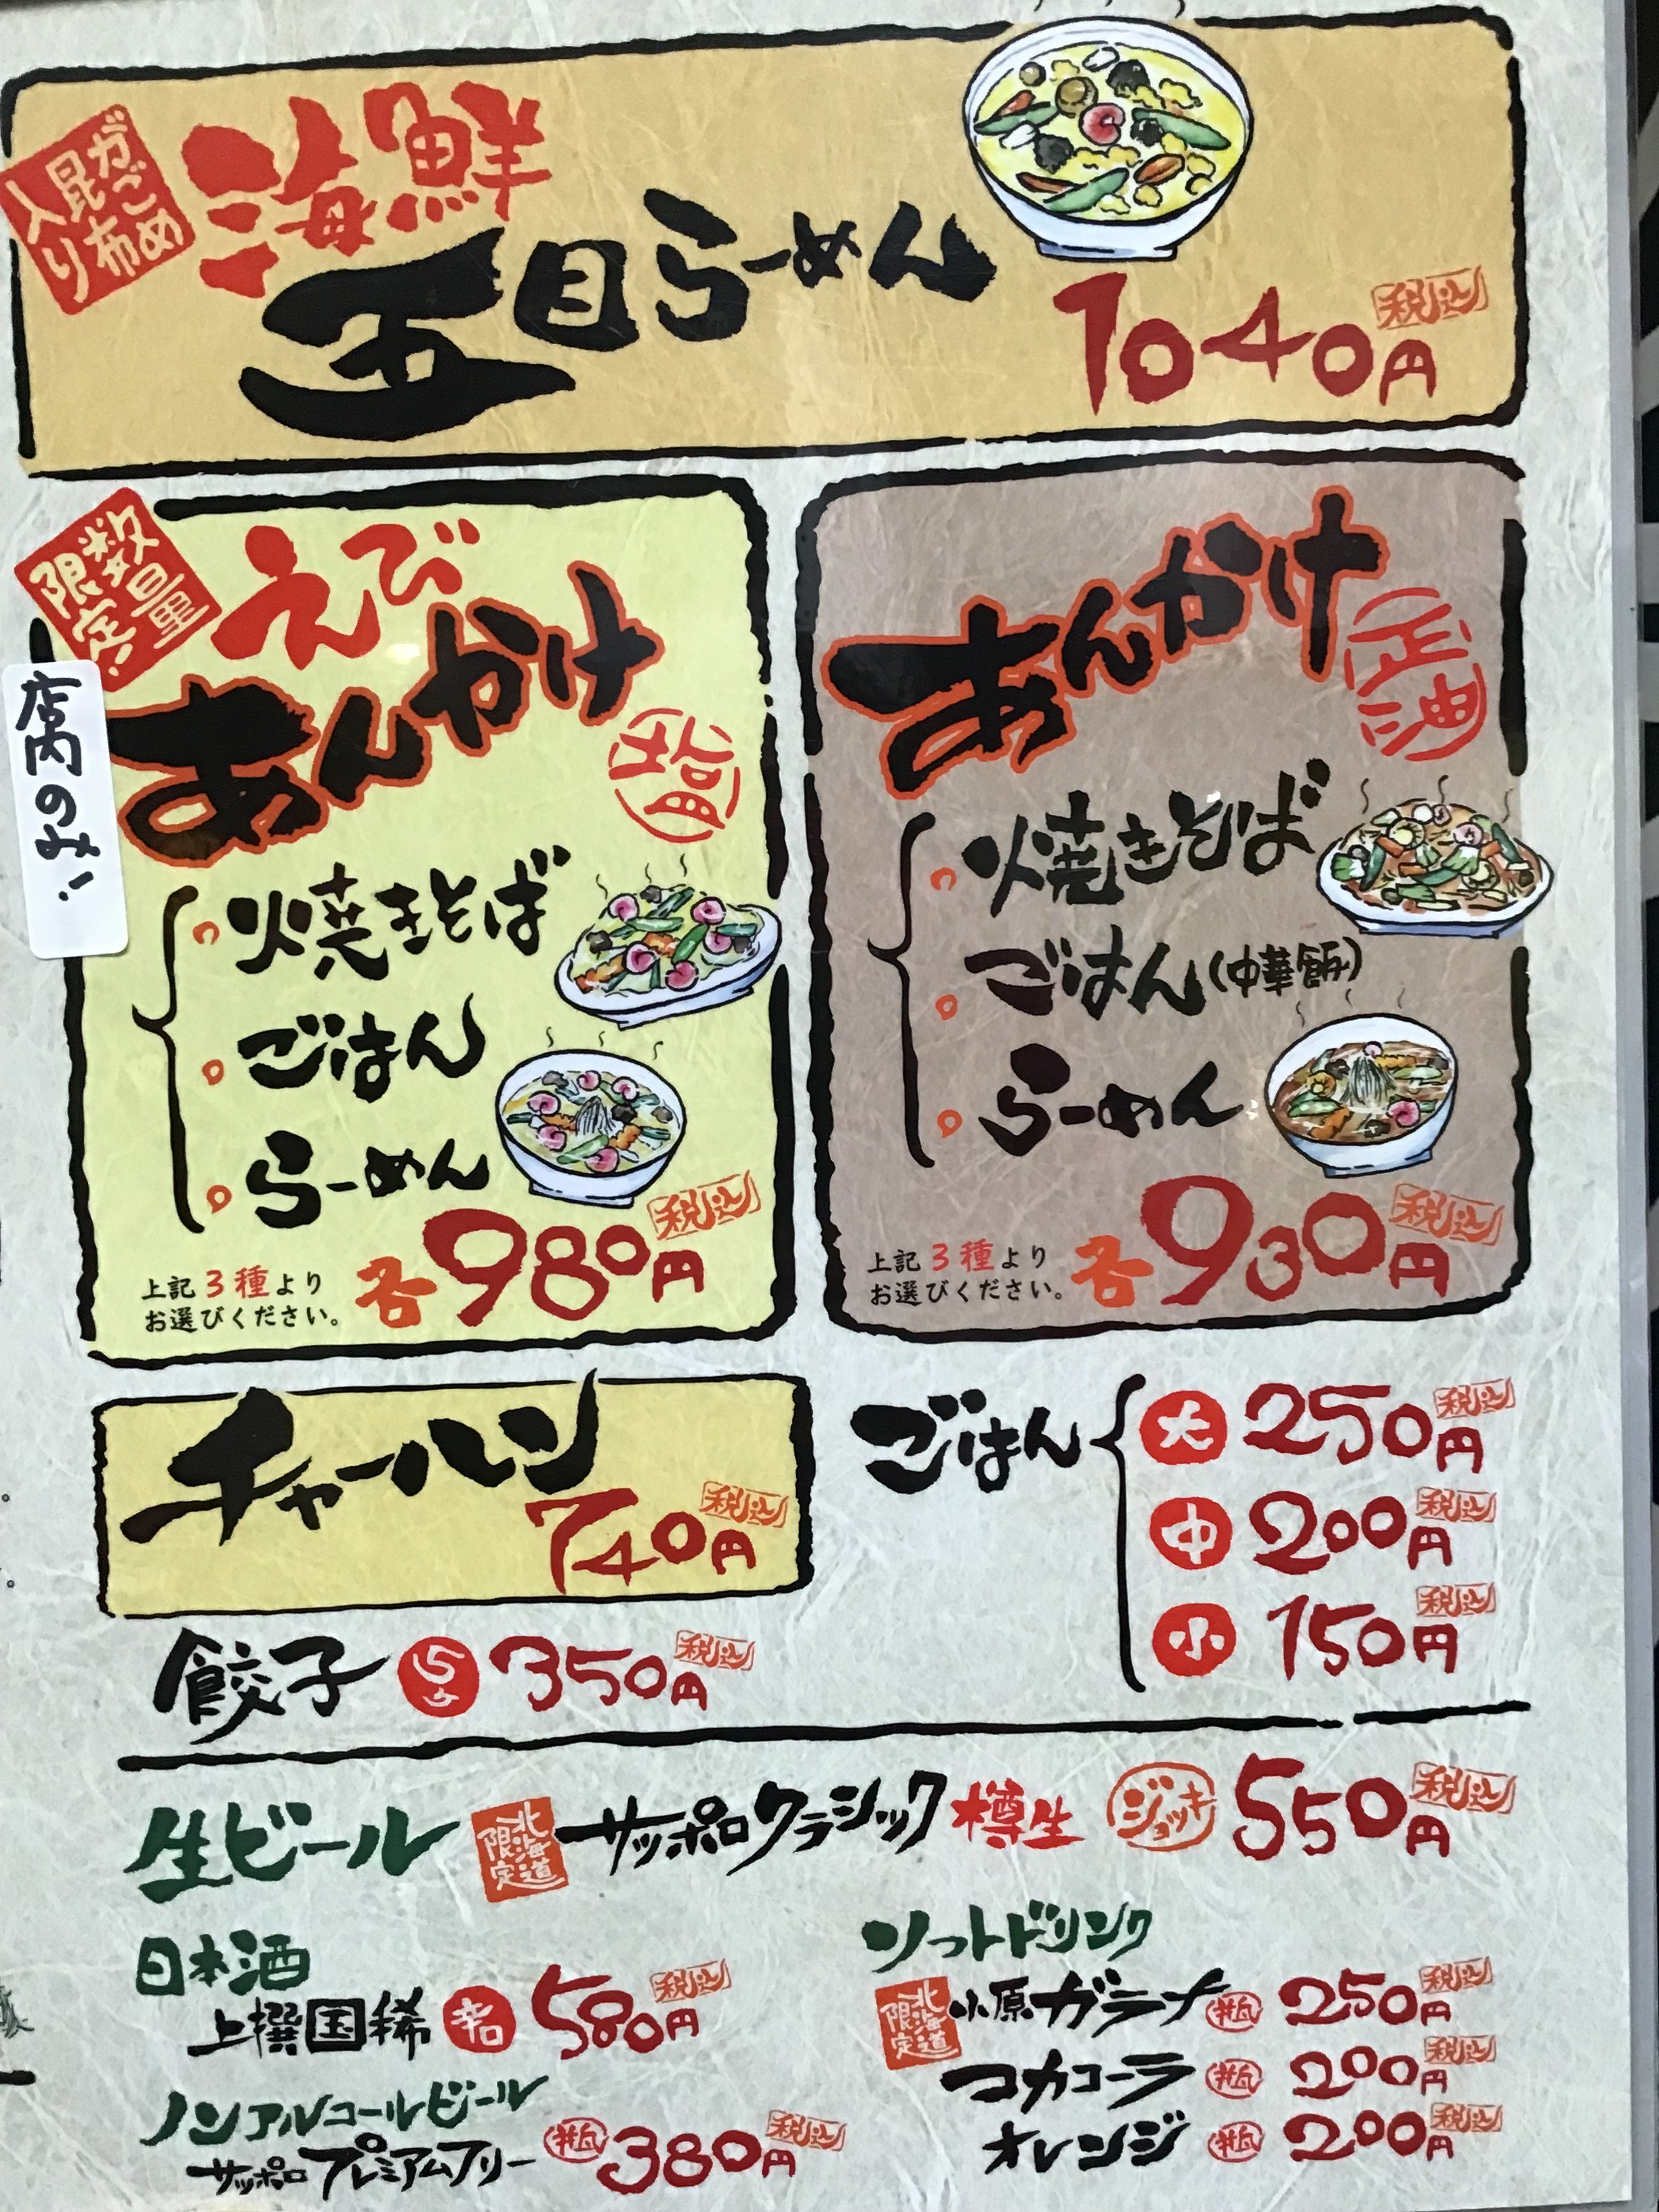 がごめ
昆布
入り
海鮮
五目らーめん
1040円 税込
数量
限定!
店内のみ!
えび
あんかけ 塩
焼きそば
ごはん
らーめん
上記3種より
お選びください。
各980円 税込
あんかけ 正油
焼きそば
ごはん(中華飯)
らーめん
上記3種より
お選びください。
各930円 税込
チャーハン
740円 税込
ごはん
大 250円 税込
中 200円 税込
小 150円 税込
餃子 5コ 350円 税込
生ビール 北海道限定 サッポロクラシック 樽生 ジョッキ 550円 税込
日本酒
上撰国稀 辛口 580円 税込
ノンアルコールビール
サッポロプレミアムフリー 瓶 380円 税込
ソフトドリンク
北海道限定 小原ガラナ 瓶 250円 税込
コカコーラ 瓶 200円 税込
オレンジ 瓶 200円 税込